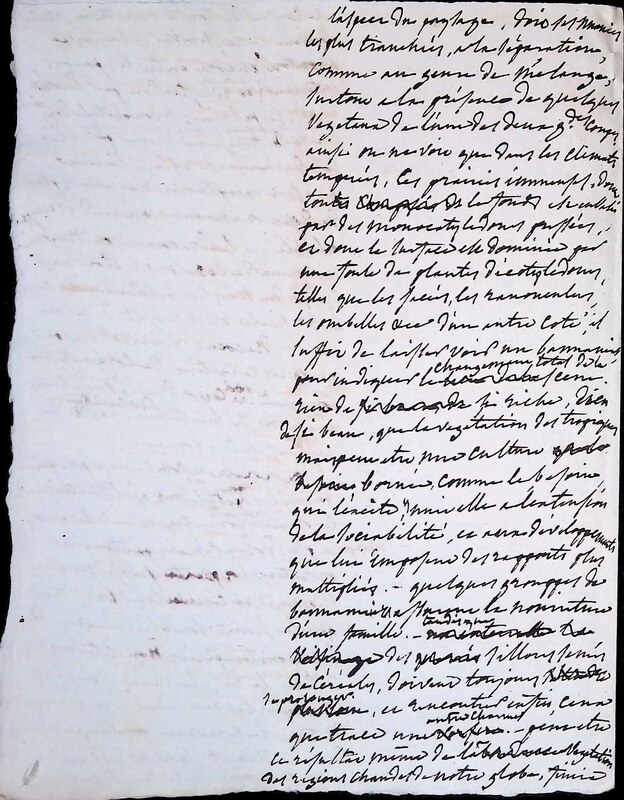 l'aspect du paysage, doit ses nuances
les plus tranchées, a la séparation,
comme au genre de mélange,
surtout a la présence de quelques
vegetaux de l'une des deux gdes coupes
ainsi on ne voit que dans les climats
temperés, ces prairies immenses, dont
toute le fond est
par des monocotyledones pressées,
et dont la surface est dominée par
une foule de plantes dicotyledones,
telles que les les renoncules,
les ombelles &ca d'un autre coté, il
suffit de laisser voir un bananier
pour indiquer le changement total de la scene.
rien de si riche, rien
de si beau, que la vegetation des tropiques
mais peut etre une culture
bornée comme le besoin
que l'excite, nuit elle a l'extension
de la sociabilité, et au developpement
que lui imposent des rapports plus
multipliés. - quelques grouppes de
bananiers la nourriture
d'une famille. - tandis que
des sillons semés
de céréales, doivent toujours
se prolonger, et rencontrer enfin ceux
que trace une autre charrue - peut etre
ce résultat même de la vegetation
des regions chaudes de notre globe,